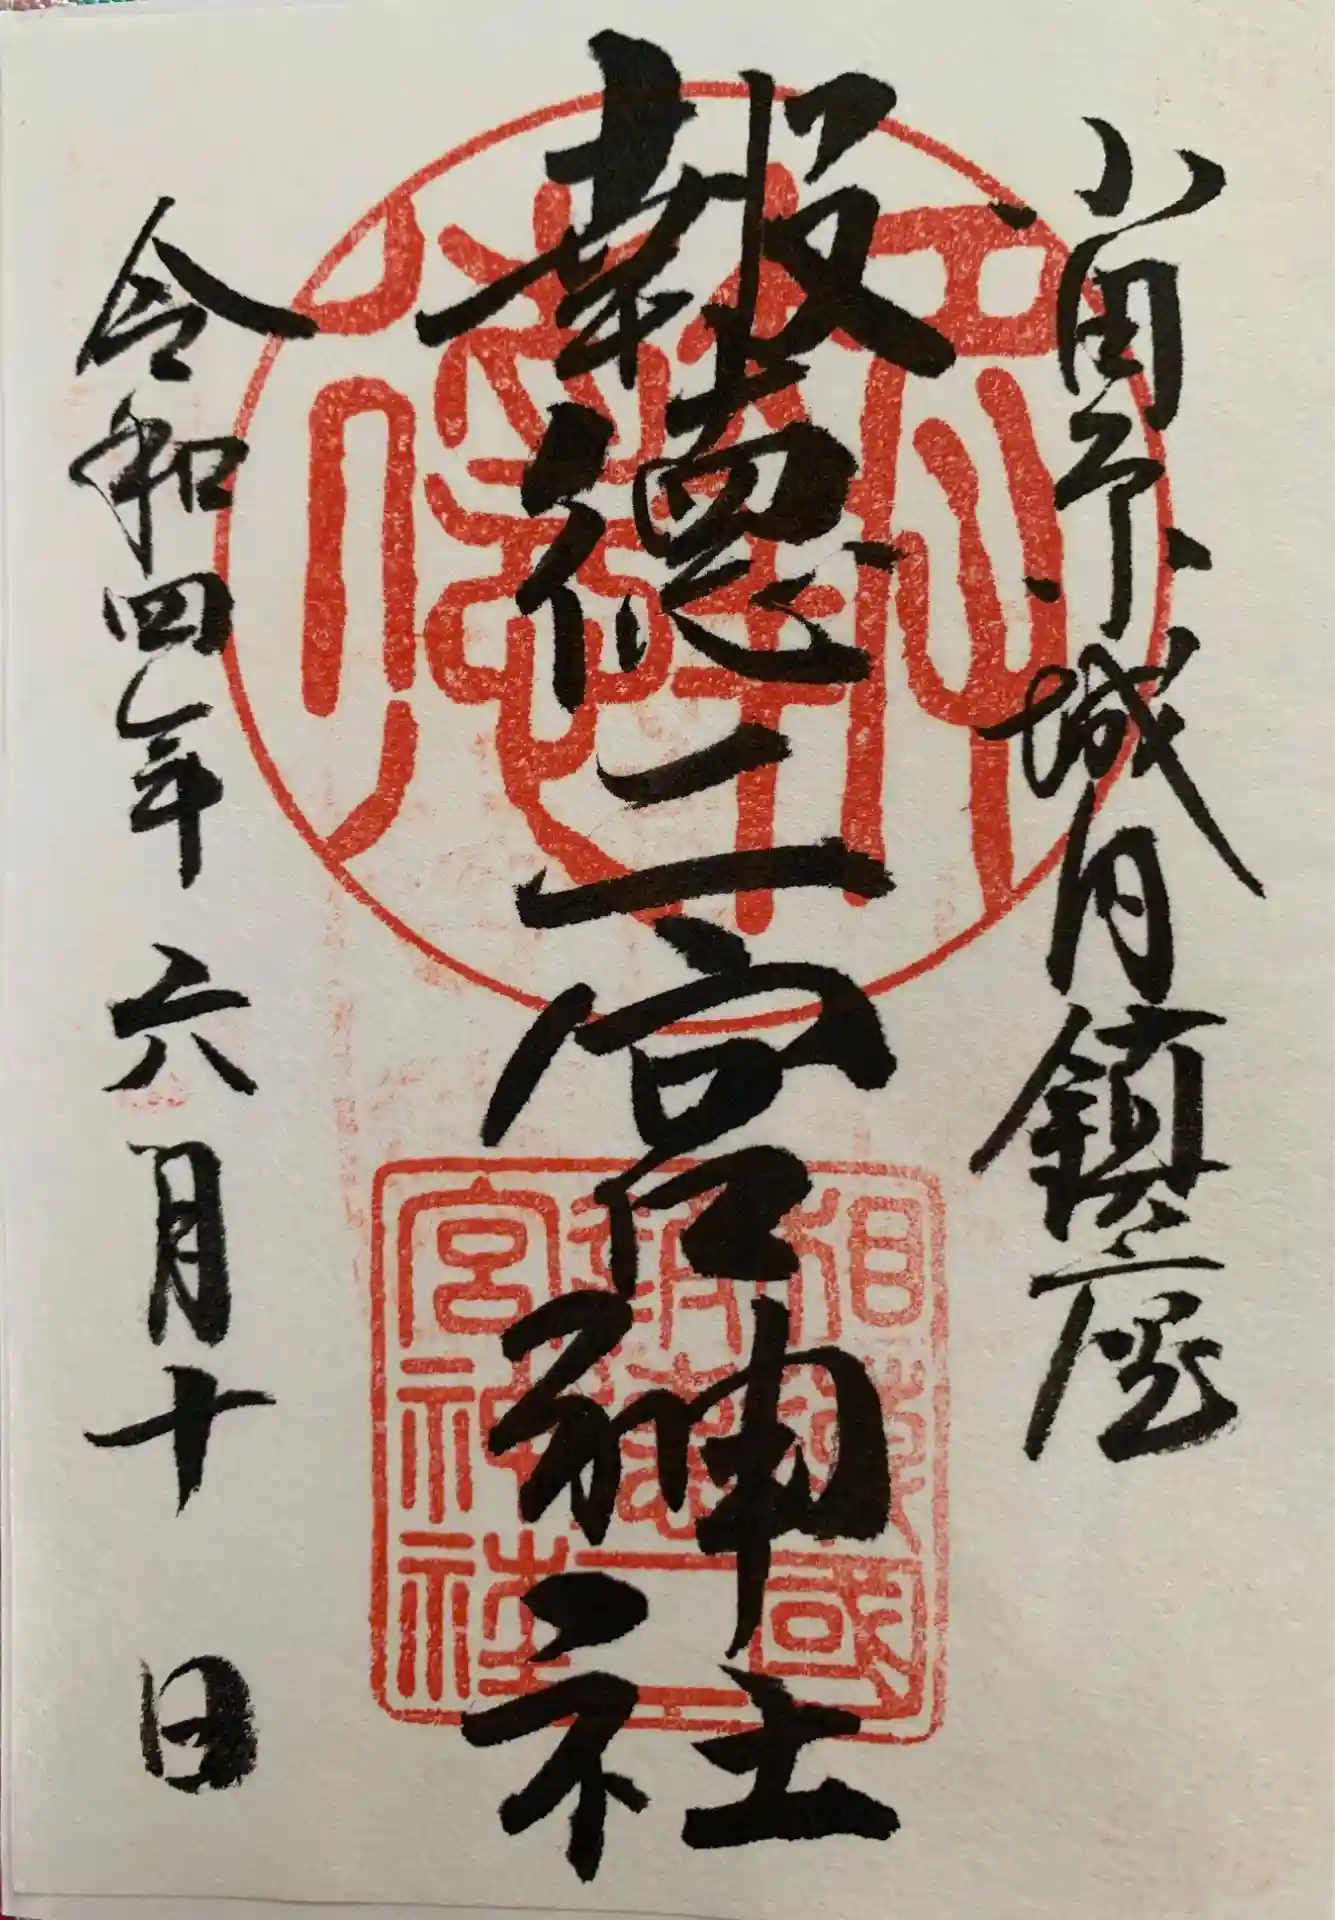 小田原城内鎮座
報徳二宮神社
相模國
報徳二
宮神社
令和四年六月十日